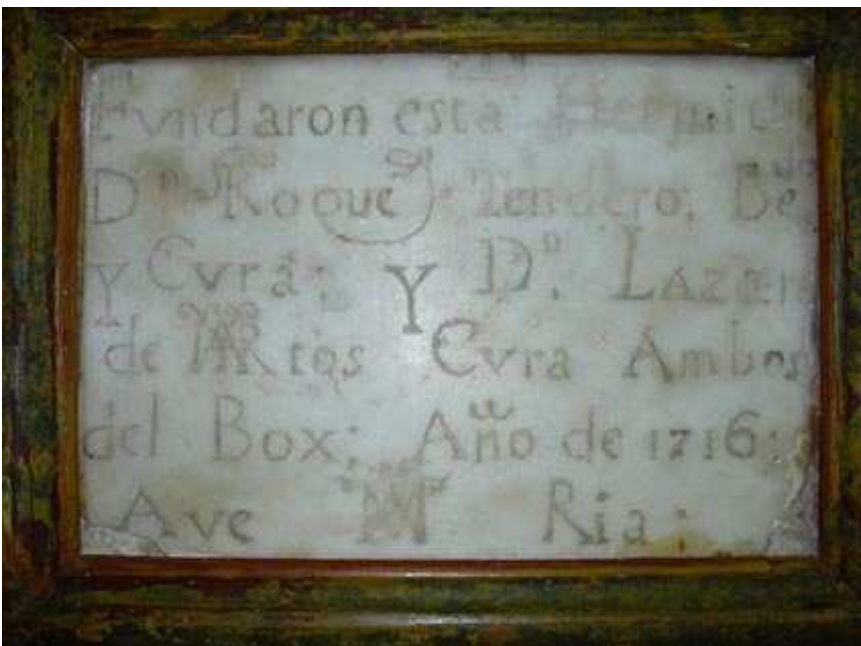 Fvndaron esta Hermita
Dn Roque Tendero; Bedo
y Cvra; Y Dn. Lazaro
de MARtos Cvra Ambos
del Box; Año de 1716;
Ave Ma Ria;